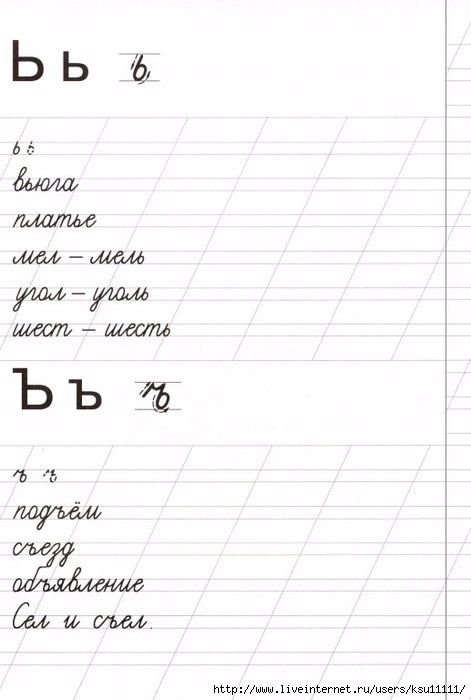 Ь ь ь
ь ь
вьюга
платье
мел – мель
угол – уголь
шест – шесть
Ъ ъ ъ
ъ ъ
подъём
съезд
объявление
Сел и съел.
http://www.liveinternet.ru/users/ksu11111/